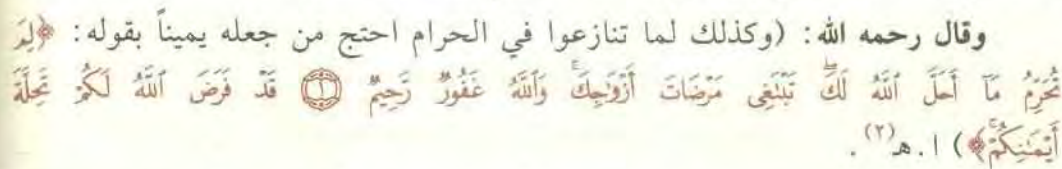 وقال رحمه الله: (وكذلك لما تنازعوا في الحرام احتج من جعله يميناً بقوله: ﴿لِمَ
تُحَرِّمُ مَآ أَحَلَّ ٱللَّهُ لَكَۖ تَبْتَغِى مَرْضَاتَ أَزْوَٰجِكَۚ وَٱللَّهُ غَفُورٌ رَّحِيمٌ ۝١ قَدْ فَرَضَ ٱللَّهُ لَكُمْ تَحِلَّةَ
أَيْمَٰنِكُمْۚ﴾) ا. هـ(٢).